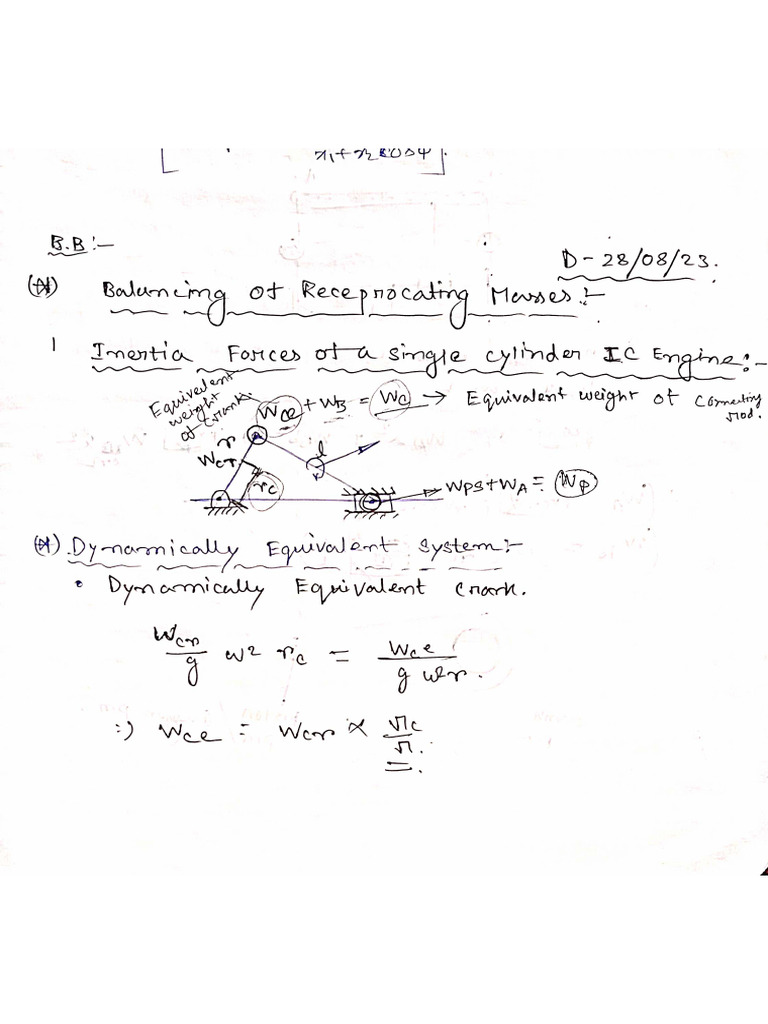 B.B:-
D-28/08/23.
(*) Balancing of Receprocating Masses:-
1 Inertia Forces of a single cylinder IC Engine:-
Equivalent weight of crank.
Wce + WB = Wc → Equivalent weight of connecting rod.
r
l
Wcr
rc
Wps+WA = Wp
(*). Dynamically Equivalent System:-
• Dynamically Equivalent crank.
Wcr/g ω² rc = Wce/g ω²r.
=) Wce = Wcr × rc/r.